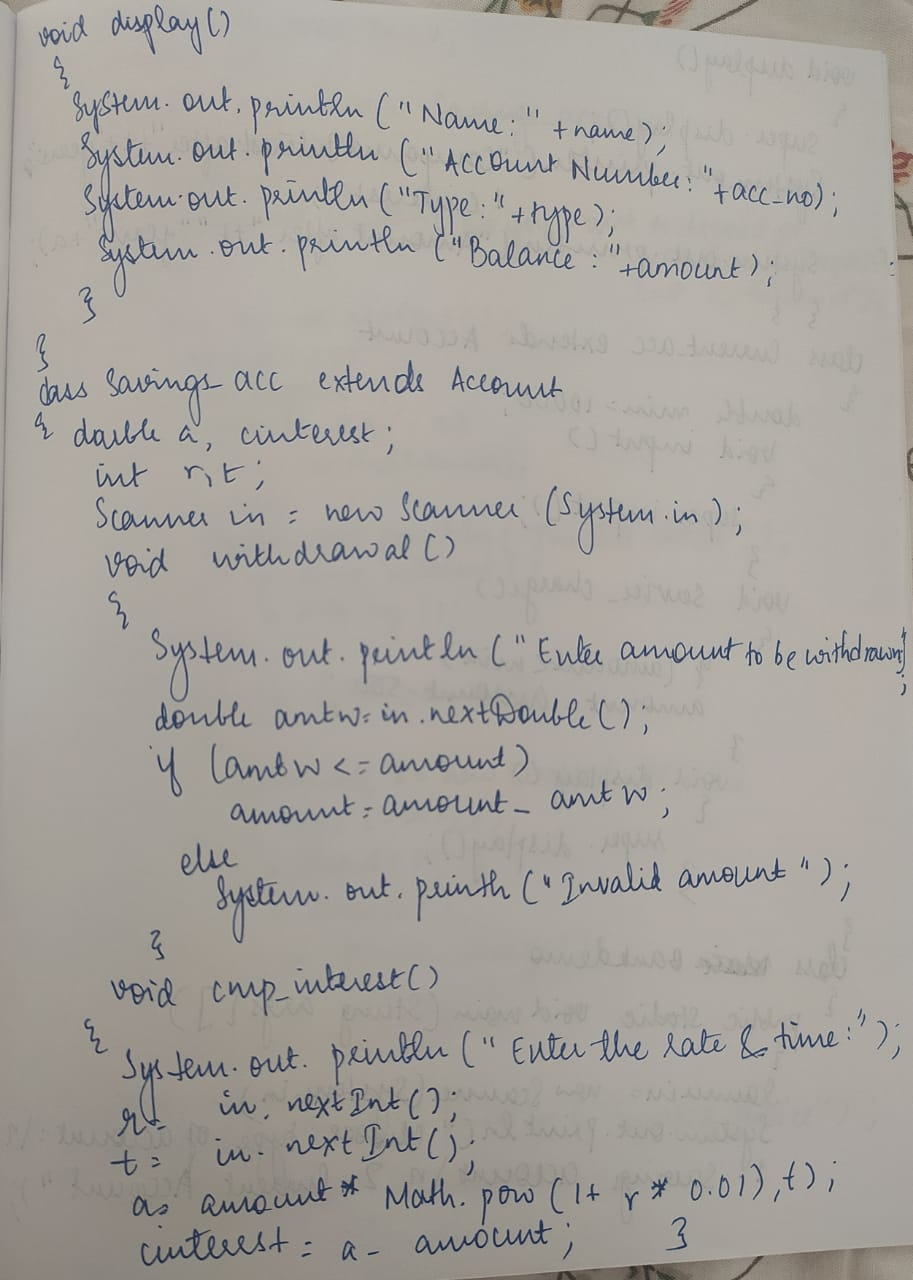 void display()
{
System.out.println ("Name:" +name);
System.out.println ("Account Number:"+acc_no);
System.out.println ("Type:"+type);
System.out.println ("Balance :"+amount);
}
}
class Savings_acc extends Account
{ double a, cinterest;
int r,t;
Scanner in = new Scanner (System.in);
void withdrawal()
{
System.out.println (" Enter amount to be withdrawn)
;
double amtw=in.nextDouble();
if (amtw<=amount)
amount=amount-amtw;
else
System.out.println ("Invalid amount");
}
void cmp_interest()
{
System.out.println (" Enter the rate & time:");
r= in.nextInt();
t= in.nextInt();
a= amount* Math.pow (1+ r* 0.01),t);
cinterest = a- amount; }